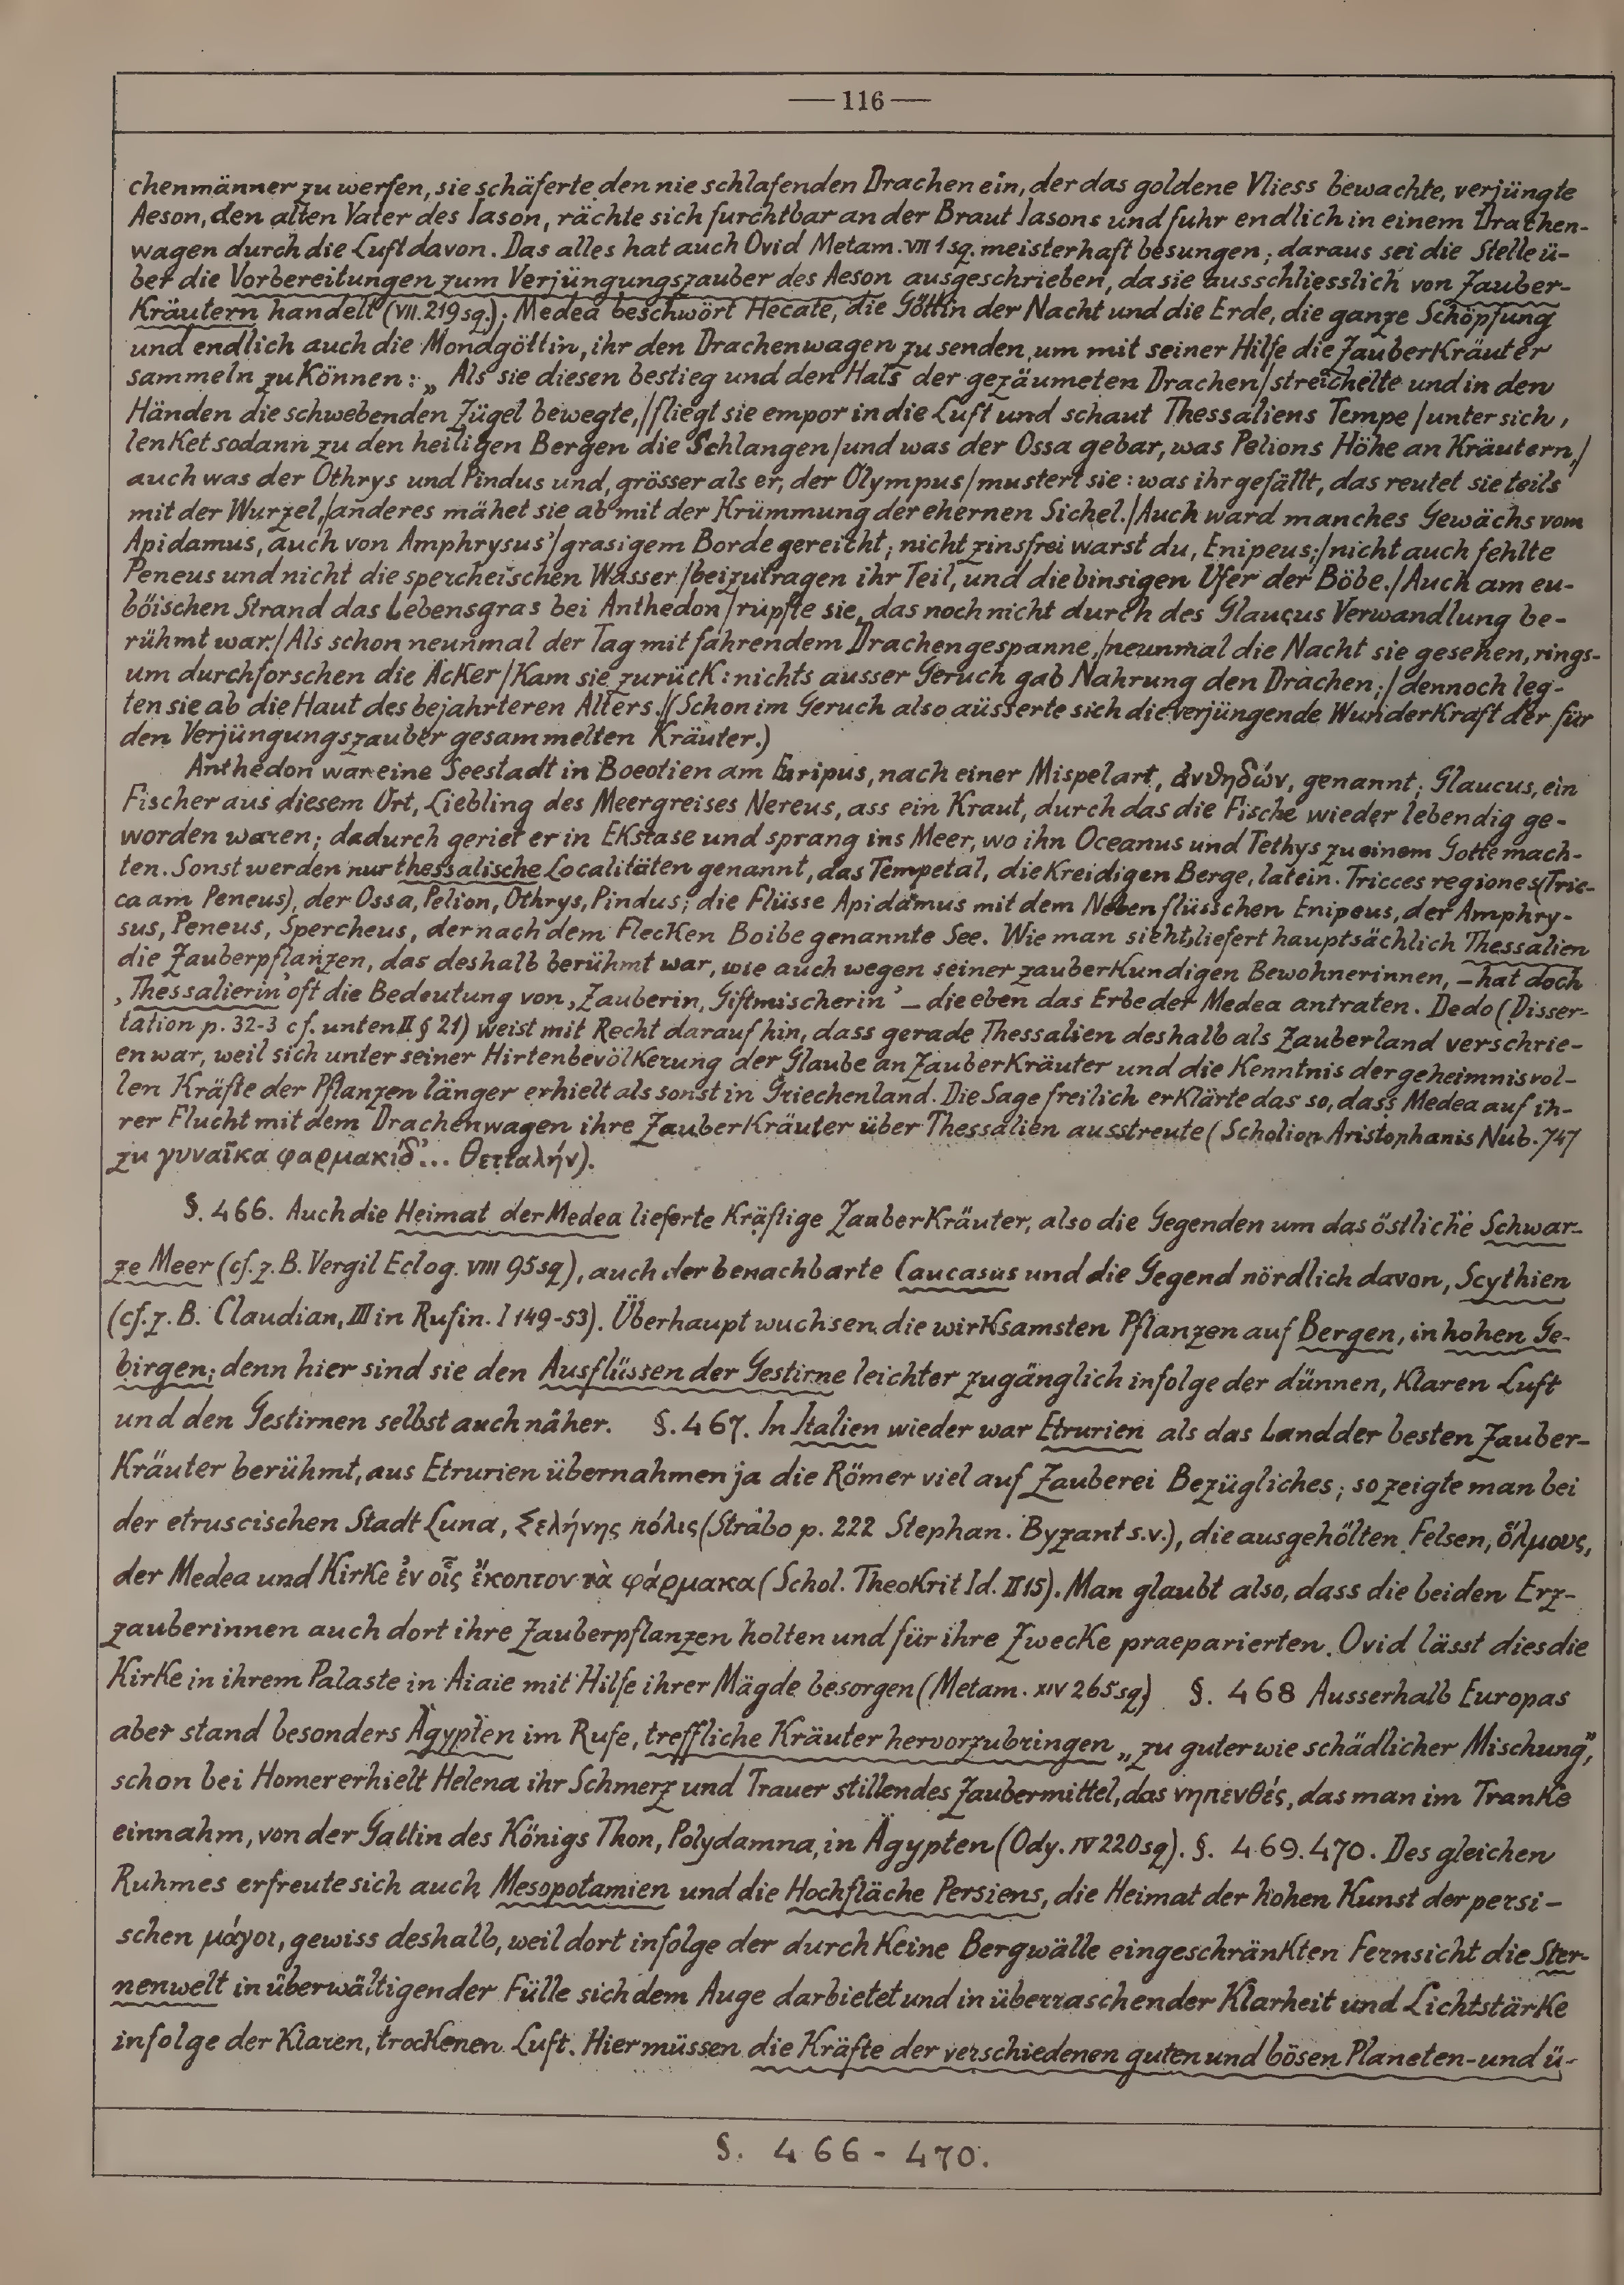 — 116 —
chenmänner zu werfen, sie schäferte den nie schlafenden Drachen ein, der das goldene Vliess bewachte, verjüngte
Aeson, den alten Vater des Iason, rächte sich furchtbar an der Braut Iasons und fuhr endlich in einem Drachen-
wagen durch die Luft davon. Das alles hat auch Ovid Metam. VII 1 sq. meisterhaft besungen; daraus sei die Stelle ü-
ber die Vorbereitungen zum Verjüngungszauber des Aeson ausgeschrieben, da sie ausschliesslich von Zauber-
kräutern handelt (VII. 219 sq.); Medea beschwört Hecate, die Göttin der Nacht und die Erde, die ganze Schöpfung
und endlich auch die Mondgöttin, ihr den Drachenwagen zu senden, um mit seiner Hilfe die Zauberkräuter
sammeln zu können: „Als sie diesen bestieg und den Hals der gezäumeten Drachen/streichelte und in den
Händen die schwebenden Zügel bewegte,/fliegt sie empor in die Luft und schaut Thessaliens Tempe/unter sich,
lenket sodann zu den heiligen Bergen die Schlangen/und was der Ossa gebar, was Pelions Höhe an Kräutern,/
auch was der Othrys und Pindus und, grösser als er, der Olympus/mustert sie: was ihr gefällt, das reutet sie teils
mit der Wurzel,/anderes mähet sie ab mit der Krümmung der ehernen Sichel./Auch ward manches Gewächs vom
Apidamus, auch von Amphrysus'/grasigem Borde gereicht; nicht zinsfrei warst du, Enipeus;/nicht auch fehlte
Peneus und nicht die spercheischen Wasser/beizutragen ihr Teil, und die binsigen Ufer der Böbe./Auch am eu-
böischen Strand das Lebensgras bei Anthedon/rupfte sie, das noch nicht durch des Glaucus Verwandlung be-
rühmt war./Als schon neunmal der Tag mit fahrendem Drachengespanne,/neunmal die Nacht sie gesehen, rings-
um durchforschen die Äcker/kam sie zurück: nichts ausser Geruch gab Nahrung den Drachen;/dennoch leg-
ten sie ab die Haut des bejahrteren Alters./(Schon im Geruch also äusserte sich die verjüngende Wunderkraft der für
den Verjüngungszauber gesammelten Kräuter.)
Anthedon war eine Seestadt in Boeotien am Euripus, nach einer Mispelart, ἀνθηδών, genannt; Glaucus, ein
Fischer aus diesem Ort, Liebling des Meergreises Nereus, ass ein Kraut, durch das die Fische wieder lebendig ge-
worden waren; dadurch geriet er in Ekstase und sprang ins Meer, wo ihn Oceanus und Tethys zu einem Gotte mach-
ten. Sonst werden nur thessalische Localitäten genannt, das Tempetal, die kreidigen Berge, latein. Tricces regiones (Tric-
ca am Peneus), der Ossa, Pelion, Othrys, Pindus; die Flüsse Apidamus mit dem Nebenflüsschen Enipeus, der Amphry-
sus, Peneus, Spercheus, der nach dem Flecken Boibe genannte See. Wie man sieht, liefert hauptsächlich Thessalien
die Zauberpflanzen, das deshalb berühmt war, wie auch wegen seiner zauberkundigen Bewohnerinnen, – hat doch
‚Thessalierin' oft die Bedeutung von ‚Zauberin, Giftmischerin' – die eben das Erbe der Medea antraten. Dedo (Disser-
tation p. 32-3 cf. unten II § 21) weist mit Recht darauf hin, dass gerade Thessalien deshalb als Zauberland verschrie-
en war, weil sich unter seiner Hirtenbevölkerung der Glaube an Zauberkräuter und die Kenntnis der geheimnisvol-
len Kräfte der Pflanzen länger erhielt als sonst in Griechenland. Die Sage freilich erklärte das so, dass Medea auf ih-
rer Flucht mit dem Drachenwagen ihre Zauberkräuter über Thessalien ausstreute (Scholion Aristophanis Nub. 747
zu γυναῖκα φαρμακίδ'... Θετταλήν).
§. 466. Auch die Heimat der Medea lieferte kräftige Zauberkräuter, also die Gegenden um das östliche Schwar-
ze Meer (cf. z. B. Vergil Eclog. VIII 95 sq), auch der benachbarte Caucasus und die Gegend nördlich davon, Scythien
(cf. z. B. Claudian, III in Rufin. I 149-53). Überhaupt wuchsen die wirksamsten Pflanzen auf Bergen, in hohen Ge-
birgen; denn hier sind sie den Ausflüssen der Gestirne leichter zugänglich infolge der dünnen, klaren Luft
und den Gestirnen selbst auch näher. §. 467. In Italien wieder war Etrurien als das Land der besten Zauber-
kräuter berühmt, aus Etrurien übernahmen ja die Römer viel auf Zauberei Bezügliches; so zeigte man bei
der etruscischen Stadt Luna, Σελήνης πόλις (Strabo p. 222 Stephan. Byzant s.v.), die ausgehölten Felsen, ὅλμους,
der Medea und Kirke ἐν οἷς ἔκοπτον τὰ φάρμακα (Schol. Theokrit Id. II 15). Man glaubt also, dass die beiden Erz-
zauberinnen auch dort ihre Zauberpflanzen holten und für ihre Zwecke praeparierten. Ovid lässt dies die
Kirke in ihrem Palaste in Aiaie mit Hilfe ihrer Mägde besorgen (Metam. XIV 265 sq) §. 468 Ausserhalb Europas
aber stand besonders Ägypten im Rufe, treffliche Kräuter hervorzubringen „zu guter wie schädlicher Mischung",
schon bei Homer erhielt Helena ihr Schmerz und Trauer stillendes Zaubermittel, das νηπενθές, das man im Tranke
einnahm, von der Gattin des Königs Thon, Polydamna, in Ägypten (Ody. IV 220 sq). §. 469. 470. Des gleichen
Ruhmes erfreute sich auch Mesopotamien und die Hochfläche Persiens, die Heimat der hohen Kunst der persi-
schen μάγοι, gewiss deshalb, weil dort infolge der durch keine Bergwälle eingeschränkten Fernsicht die Ster-
nenwelt in überwältigender Fülle sich dem Auge darbietet und in überraschender Klarheit und Lichtstärke
infolge der klaren, trockenen Luft. Hier müssen die Kräfte der verschiedenen guten und bösen Planeten- und ü-
§. 466 - 470.